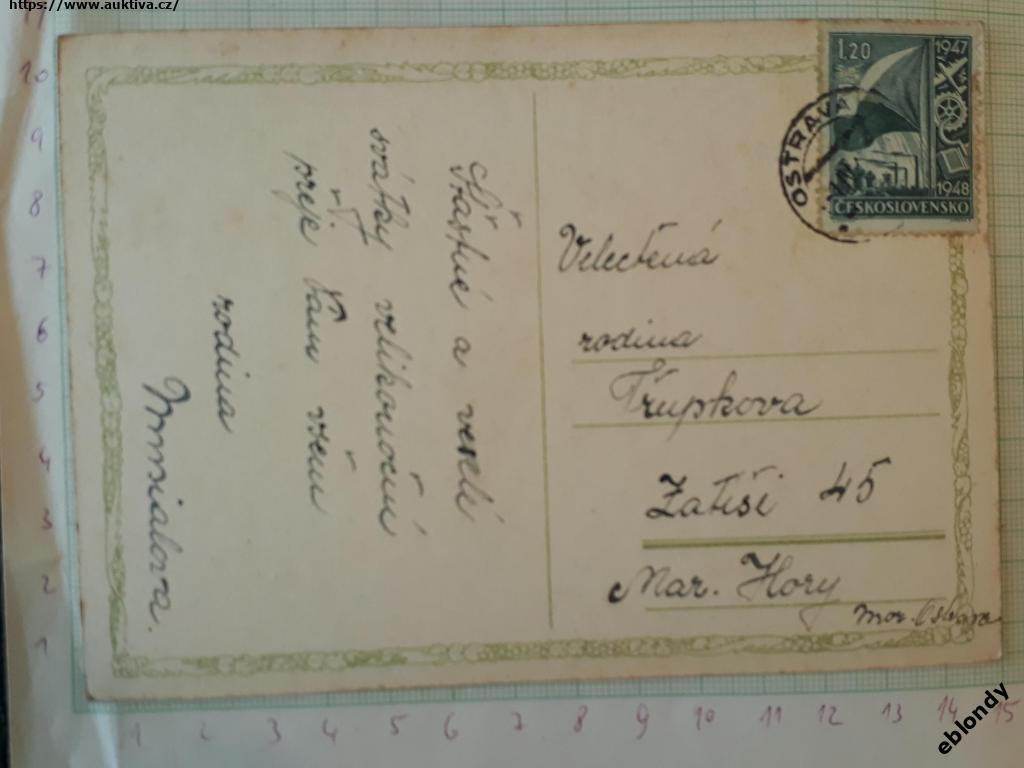 https://www.auktiva.cz/
Šťastné a veselé
svátky velikonoční
přeje Vám všem
rodina
1.20
1947
1948
ČESKOSLOVENSKO
OSTRAVA
Velectěná
rodina
Třupkova
Zátiší 45
Mar. Hory
Mor. Ostrava
10
9
8
7
6
5
4
3
2
1
1 2 3 4 5 6 7 8 9 10 11 12 13 14 15
eblondy